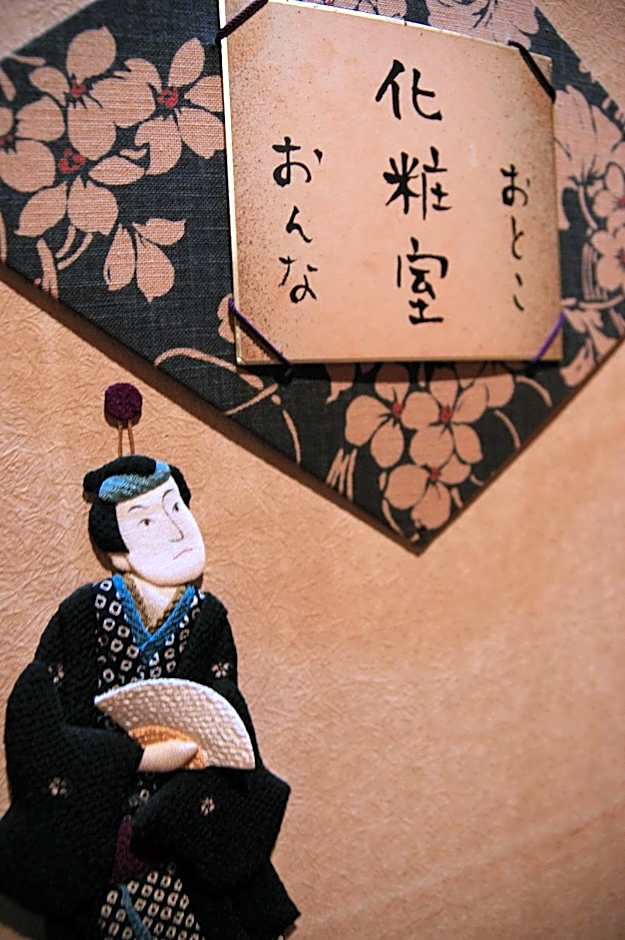 おとこ
化粧室
おんな